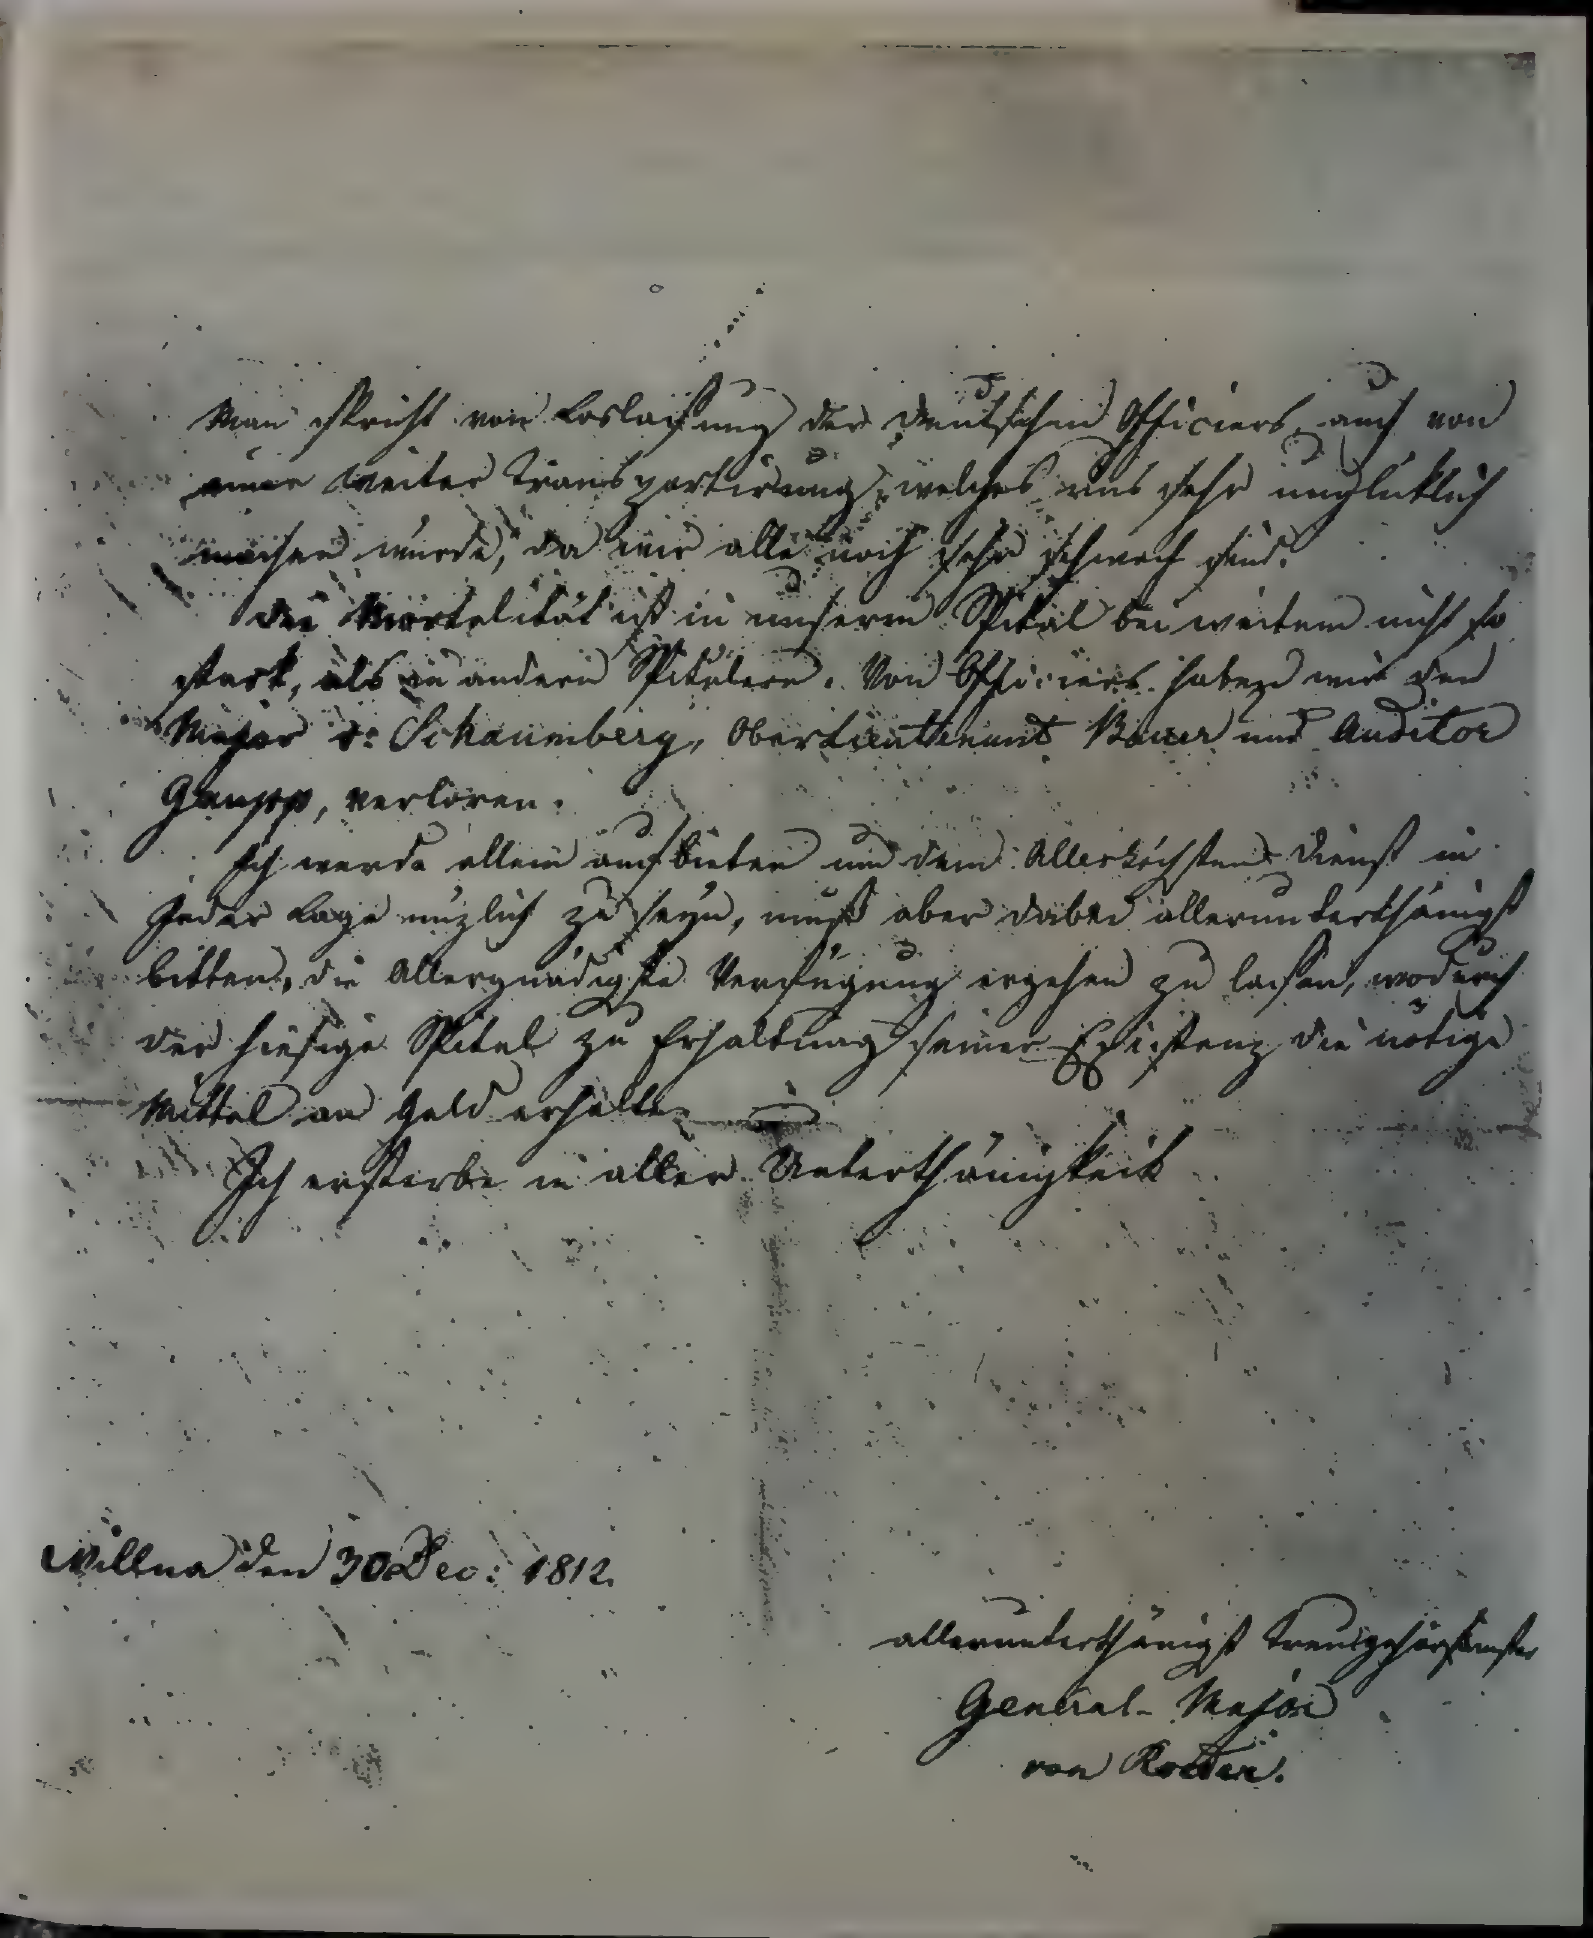 Man spricht von Loslaßung der deutschen Officiers, auch von
einer weiter Transportirung, welches uns sehr unglücklich
machen würde, da wir alle noch sehr schwach sind.
Die Mortalität ist in unserm Spital bei weitem nicht so
stark, als in andern Spitälern. Von Officiers haben wir den
Major v: Schaumberg, Oberlieuttenant Bauer und Auditor
Gaupp, verloren.
Ich werde allem aufbieten um dem Allerhöchsten Dienst in
jeder Lage nüzlich zu seyn, muß aber dabei allerunterthänigst
bitten, die Allergnädigste Verfügung ergehen zu laßen, wodurch
der hiesige Spital zu Erhaltung seiner Existenz die nötige
Mittel an Geld erhalte.
Ich ersterbe in aller Unterthänigkeit
Willna den 30 Dec: 1812.
allerunterthänigst treugehorsamster
General-Major
von Roeder.